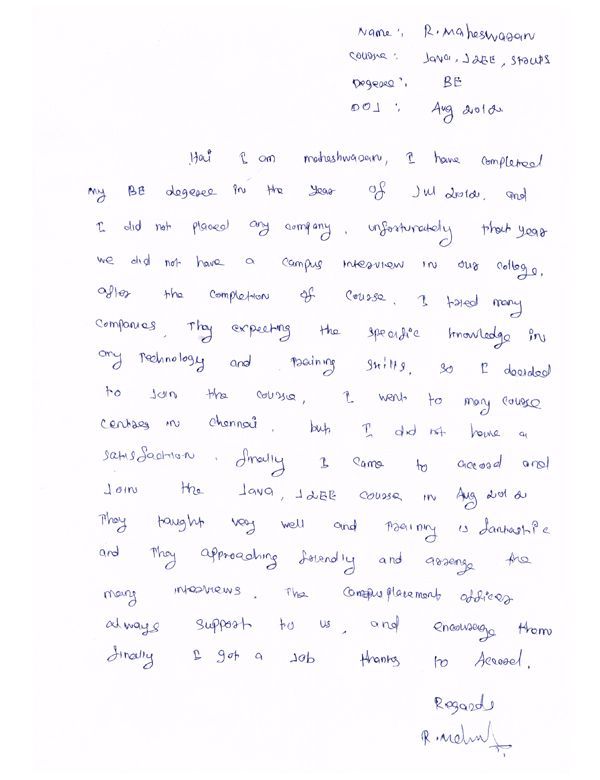 Name : R. Maheswaran
Course : Java, J2EE, Struts
Degree : BE
DOJ : Aug 2012
Hai I am maheshwaran, I have completed
my BE degree in the Year of Jul 2012. and
I did not placed any company. unfortunately that year
we did not have a campus interview in our college.
after the completion of course. I tried many
Companies. They expecting the specific knowledge in
any Technology and Training skills. so I decided
to Join the course, I went to many course
centres in chennai. but I did not have a
satisfaction. finally I came to accord and
Join the Java, J2EE course in Aug 2012
They taught very well and Training is fantastic
and They approaching friendly and arrenge the
many interviews. The campusplacement officer
always support to us, and encourage them
finally I got a Job thanks to Accord.
Regards